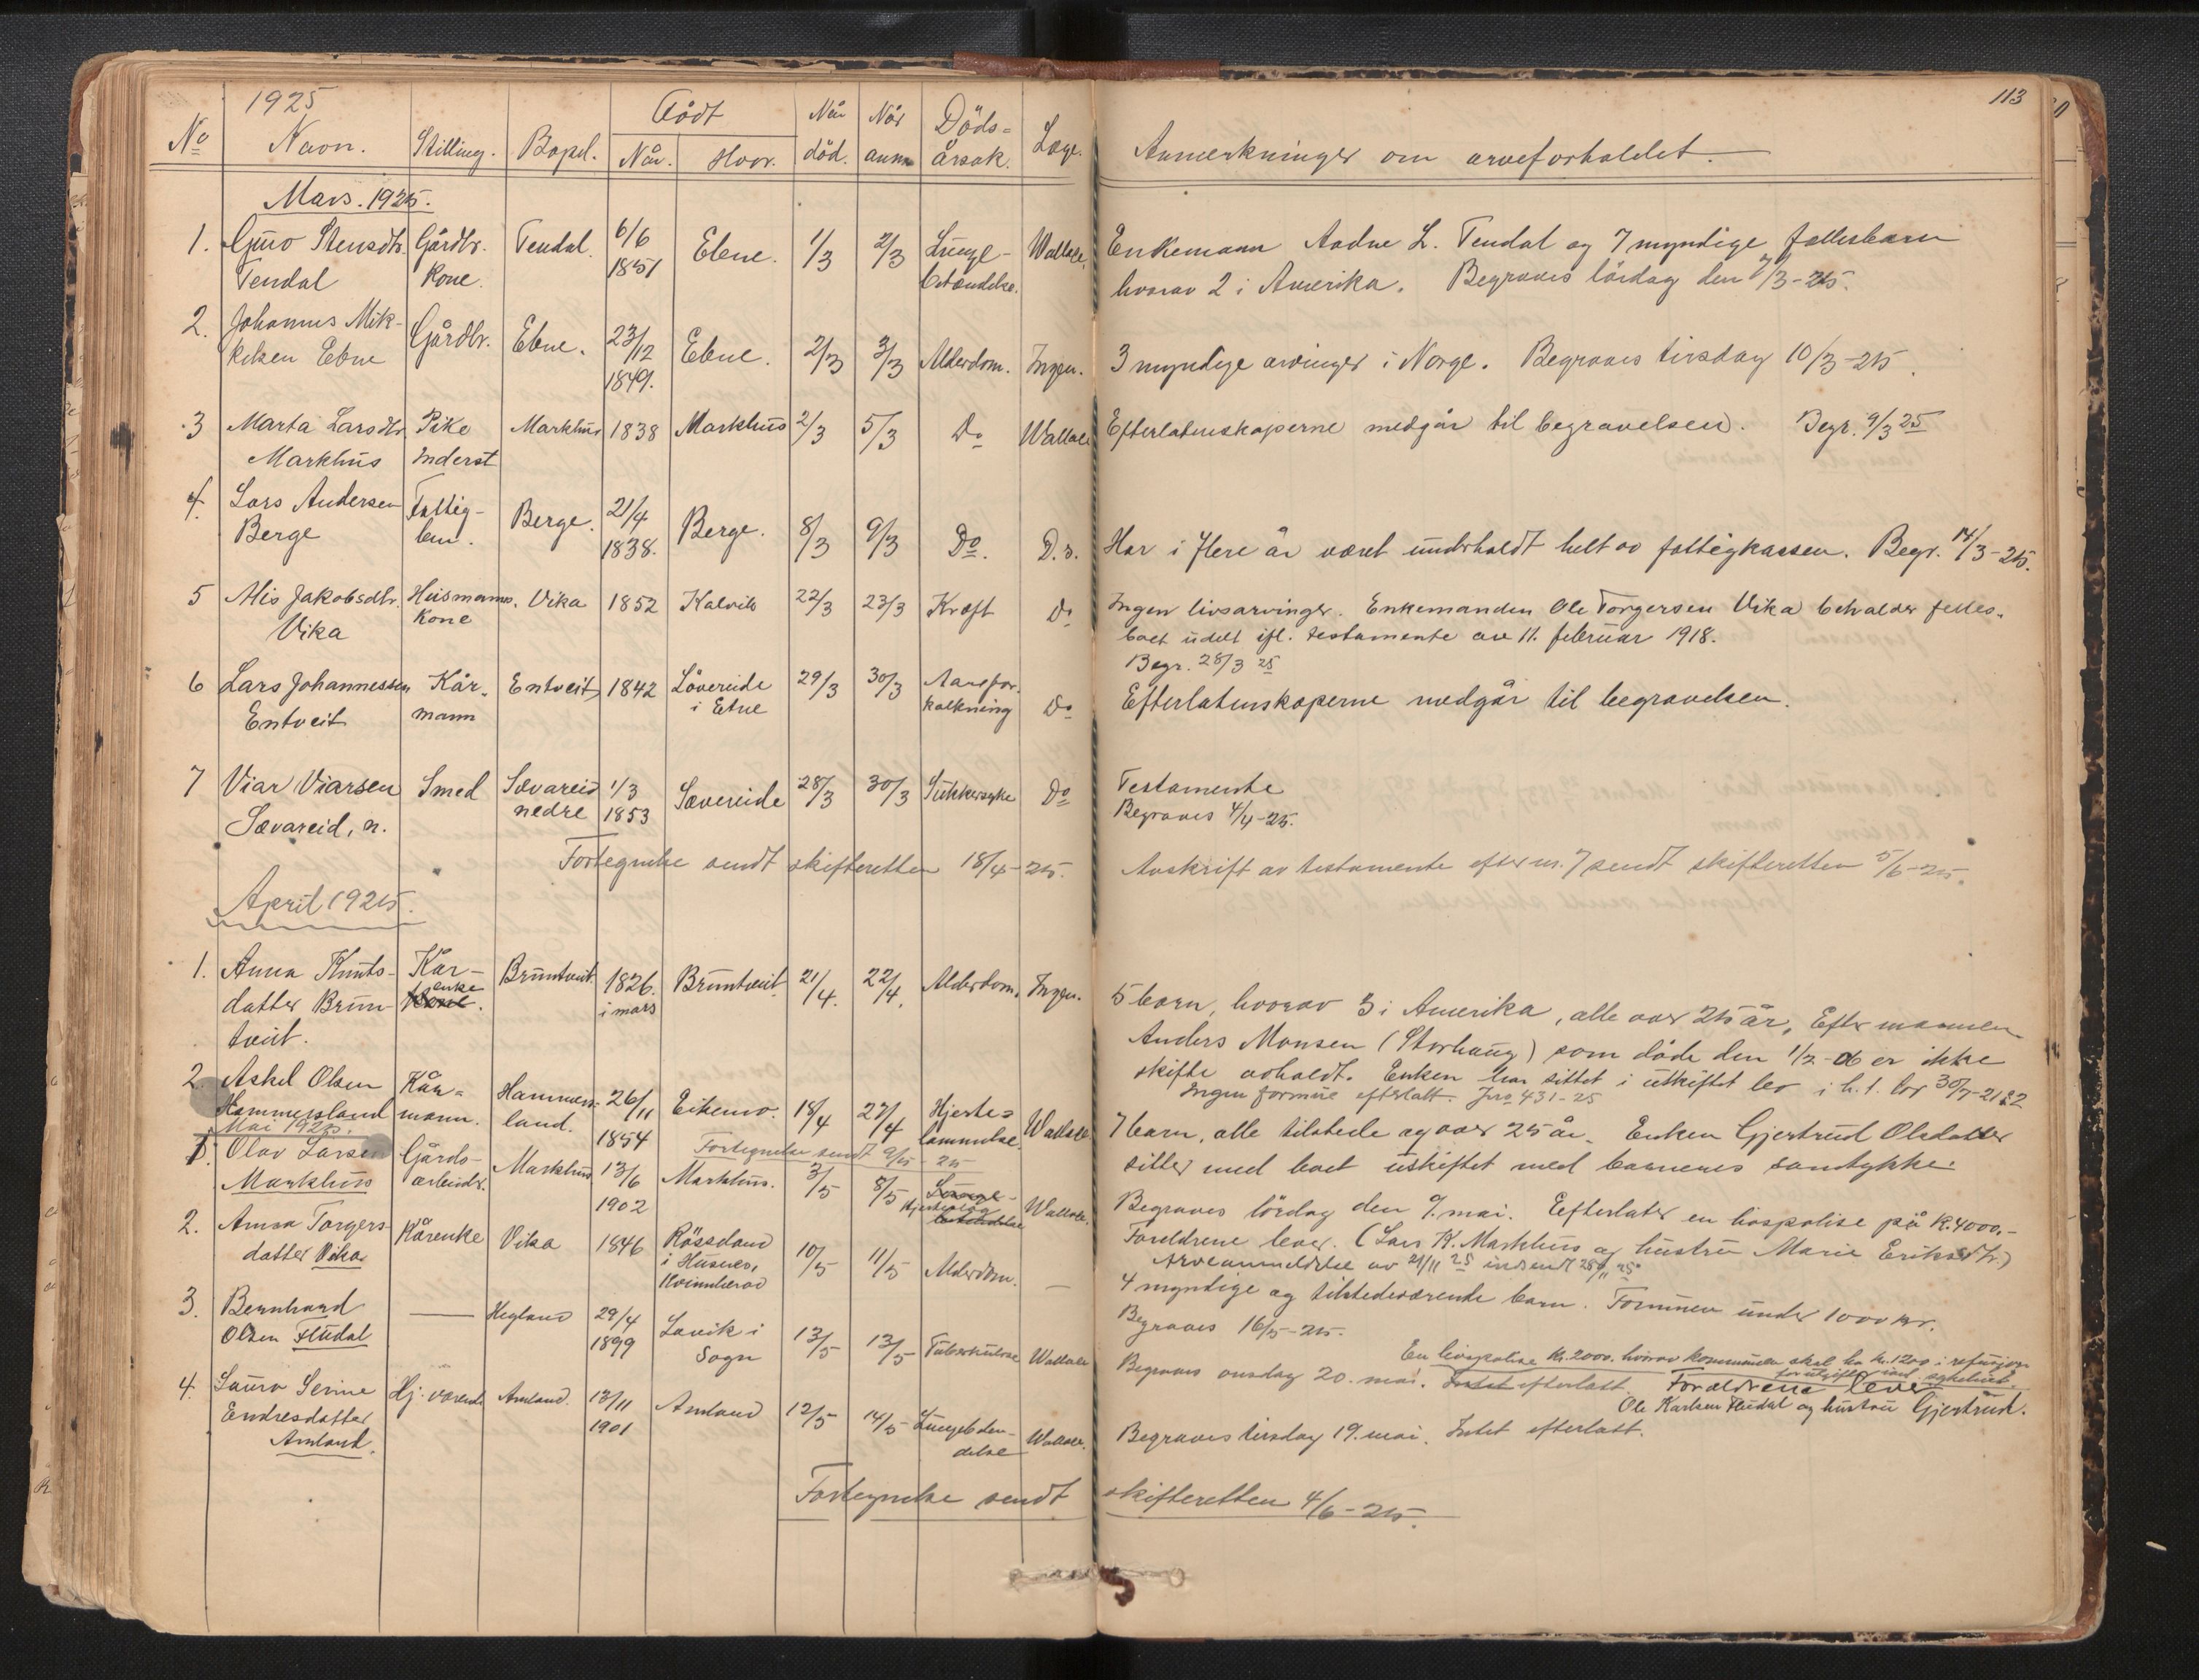 113
1925
No Navn. Stilling. Bopel. Född Når Når Döds- Læge.
Når. Hvor. död. anm årsak. Anmerkninger om arveforholdet.
Mars. 1925.
1. Guro Stensdtr. Gårdbr. Tendal. 6/6 Ebne. 1/3 2/3 Lunge- Wallace. Enkemann Aadne L. Tendal og 7 myndige fellesbarn
Tendal kone. 1851 betændelse. hvorav 2 i Amerika. Begraves lördag den 7/3-25.
2. Johannes Mik- Gårdbr. Ebne. 23/12 Ebne. 2/3 3/3 Alderdom. Ingen. 3 myndige arvinger i Norge. Begraves tirsdag 10/3-25.
kelsen Ebne 1849.
3 Marta Larsdtr Pike Markhus 1838 Markhus 2/3 5/3 Do Wallace Efterlatenskaperne medgår til begravelsen. Begr. 9/3 25
Markhus Inderst
4. Lars Andersen Fattig- Berge. 21/4 Berge. 8/3 9/3 Do. D.o. Har i flere år været underholdt helt av fattigkassen. Begr. 14/3-25.
Berge lem. 1838.
5 Alis Jakobsdtr. Husmanns. Vika 1852 Kalvik 22/3 23/3 Kræft Do Ingen livsarvinger. Enkemanden Ole Torgersen Vika beholder felles-
Vika kone boet udelt ifl. testamente av 11. februar 1918.
Begr. 28/3 25
6 Lars Johannessen Kår- Entveit 1842 Løvereide 29/3 30/3 Aarefor- Do Efterlatenskaperne medgår til begravelsen.
Entveit mann i Etne kalkning
7 Viar Viarsen Smed Sævareid 1/3 Sævereide 28/3 30/3 Sukkersyke Do Testamente
Sævareid, n. nedre 1853 Begraves 4/4-25.
Fortegnelse sendt skifteretten 18/4-25. Avskrift av testamente efter nr. 7 sendt skifteretten 5/6-25.
April 1925.
1. Anna Knuts- Kår- Bruntveit 1826. Bruntveit 21/4. 22/4. Alderdom. Ingen. 5 barn, hvorav 3 i Amerika, alle over 25 år. Efter mannen
datter Brun- enke i mars Anders Monsen (Storhaug) som döde den 1/2-06 er ikke
tveit. skifte avholdt. Enken har sittet i uskiftet bo
Ingen formue efterlatt. Jno 431-25
2. Askel Olsen Kår- Hammers- 26/11 Eikemo. 18/4 27/4 Hjerte- Wallace 7 barn, alle tilstede og over 25 år. Enken Gjertrud Olsdatter
Hammersland mann. land. 1854 lammelse sitter med boet uskiftet med barnenes samtykke.
Mai 1925. Fortegnelse sendt 9/5-25
1. Olav Larsen Gårds- Markhus 13/6 Markhus. 3/5 8/5 Lunge- Wallace. Begraves lördag den 9. mai. Efterlater en livspolise på k. 4000,-
Markhus arbeider. 1902 betændelse Foreldrene lever. (Lars K. Markhus og hustru Marie Eriksdtr.)
Arveanmeldelse av 21/11 25 indsendt 28/11 25.
2. Anna Torgers- Kårenke Vika 1846 Røssland 10/5 11/5 Alderdom. — 4 myndige og tilstedeværende barn. Formuen under 1000 kr.
datter Vika. i Husnes, Begraves 16/5-25.
Kvinnherad
3. Bernhard — Hegland 29/4 Lavik i 13/5 13/5 Tuberkulose Wallace En livspolise kr. 2000. hvorav kommunen skal ha kr. 1200 i refusjon
Olsen Fludal 1899 Sogn for utgifter sykehus.
Begraves onsdag 20. mai. Intet efterlatt. Foreldrene lever
Ole Karlsen Fludal og hustru Gjertrud.
4. Laura Serine Hj. værende Amland. 13/11 Amland 12/5 14/5 Lungebeten- Wallace. Begraves tirsdag 19. mai. Intet efterlatt.
Endresdatter 1901 delse
Amland.
Fortegnelse sendt skifteretten 4/6-25.